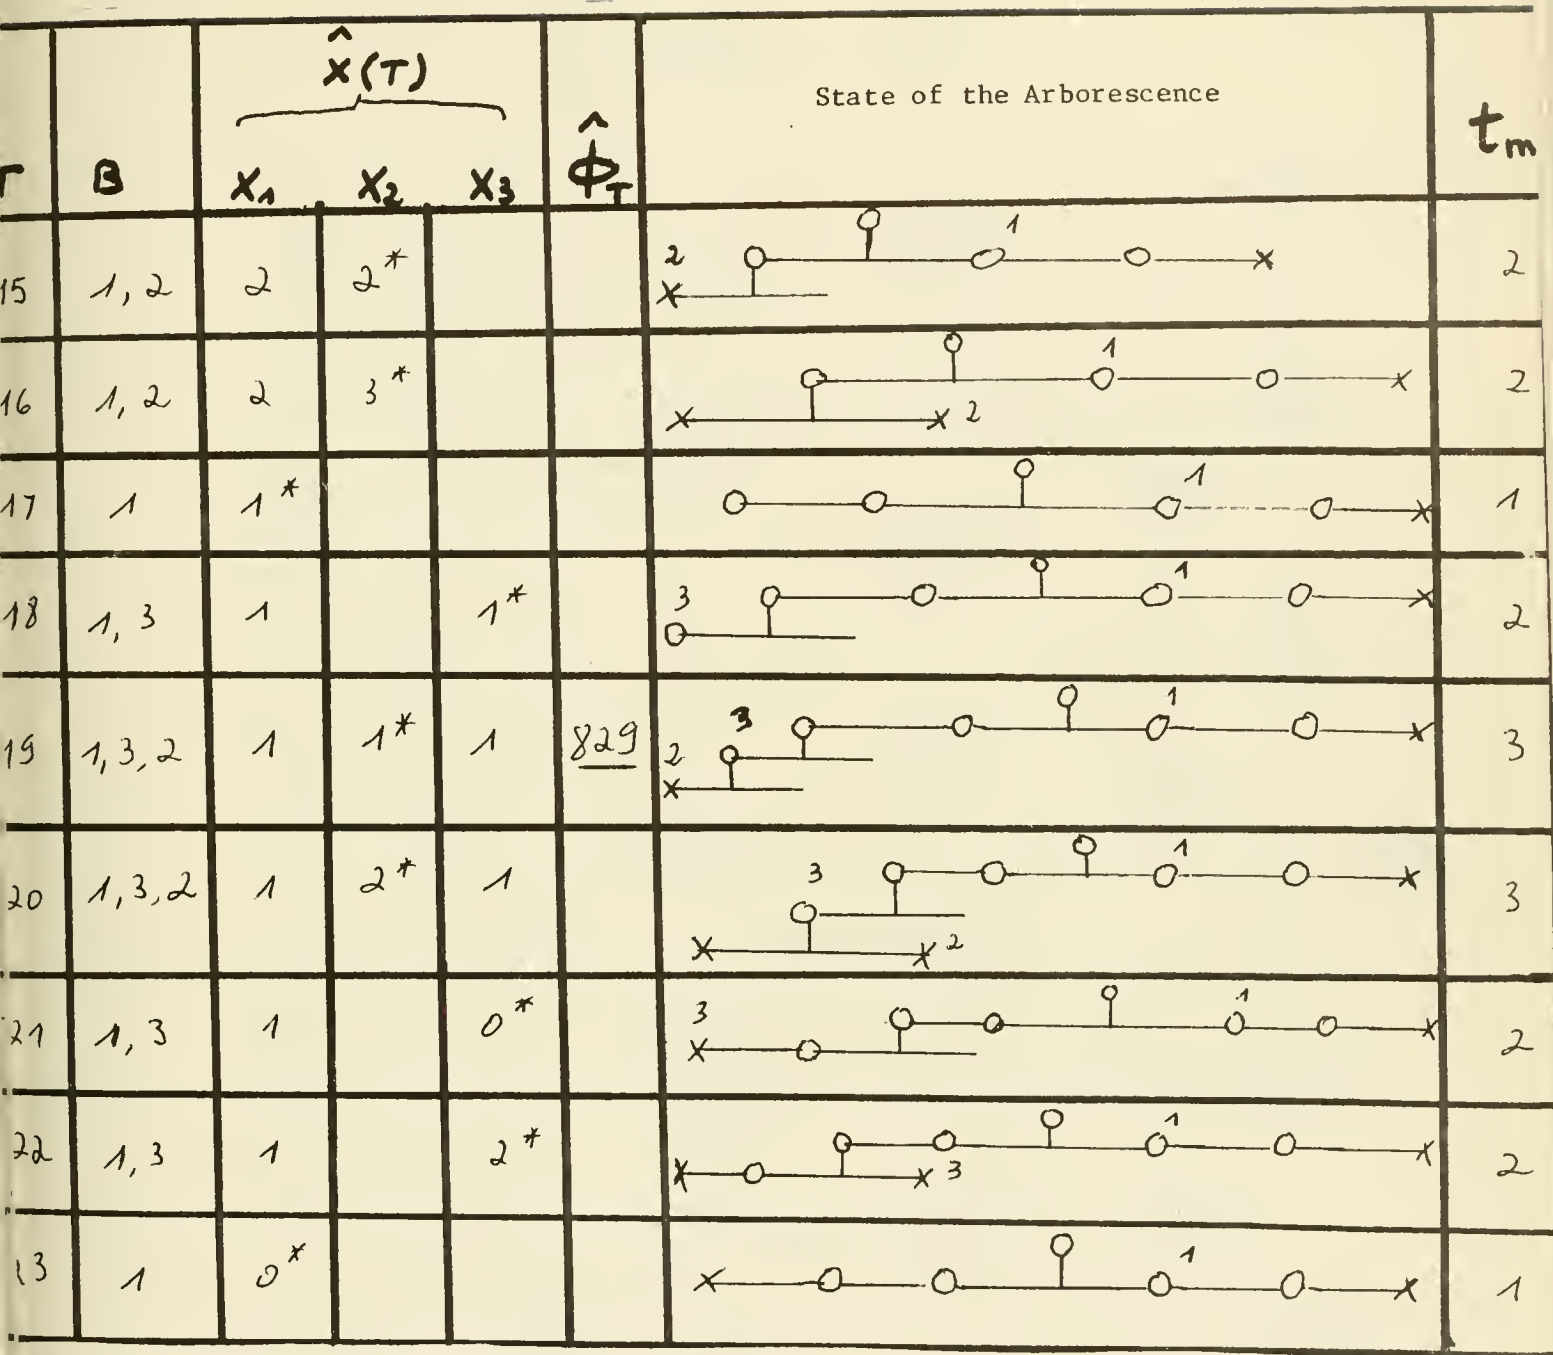 x̂(T)
State of the Arborescence
T B x₁ x₂ x₃ Φ̂_T t_m
15 1, 2 2 2* 2 1 2
16 1, 2 2 3* 1 2 2
17 1 1* 1 1
18 1, 3 1 1* 3 1 2
19 1, 3, 2 1 1* 1 829 2 3 1 3
20 1, 3, 2 1 2* 1 3 1 2 3
21 1, 3 1 0* 3 1 2
22 1, 3 1 2* 1 3 2
13 1 0* 1 1